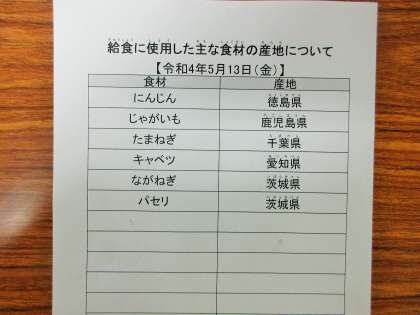 給食に使用した主な食材の産地について
【令和4年5月13日(金)】
食材 産地
にんじん 徳島県
じゃがいも 鹿児島県
たまねぎ 千葉県
キャベツ 愛知県
ながねぎ 茨城県
パセリ 茨城県